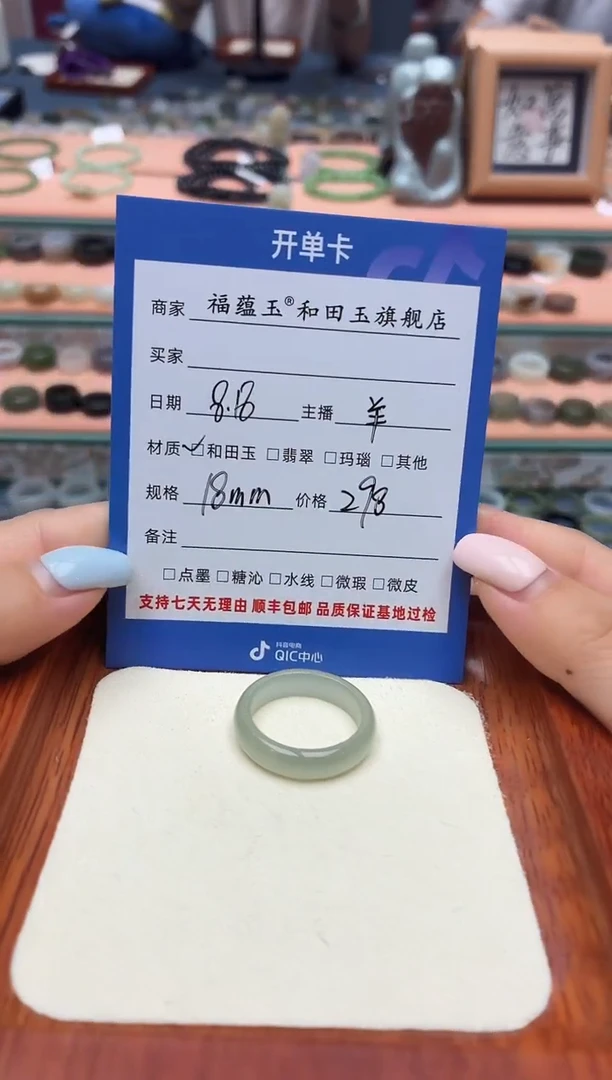 开单卡
商家 福蕴玉®和田玉旗舰店
买家
日期 8.18 主播 羊
材质 ☑和田玉 □翡翠 □玛瑙 □其他
规格 18mm 价格 298
备注
□点墨 □糖沁 □水线 □微瑕 □微皮
支持七天无理由 顺丰包邮 品质保证基地过检
抖音电商
QIC中心